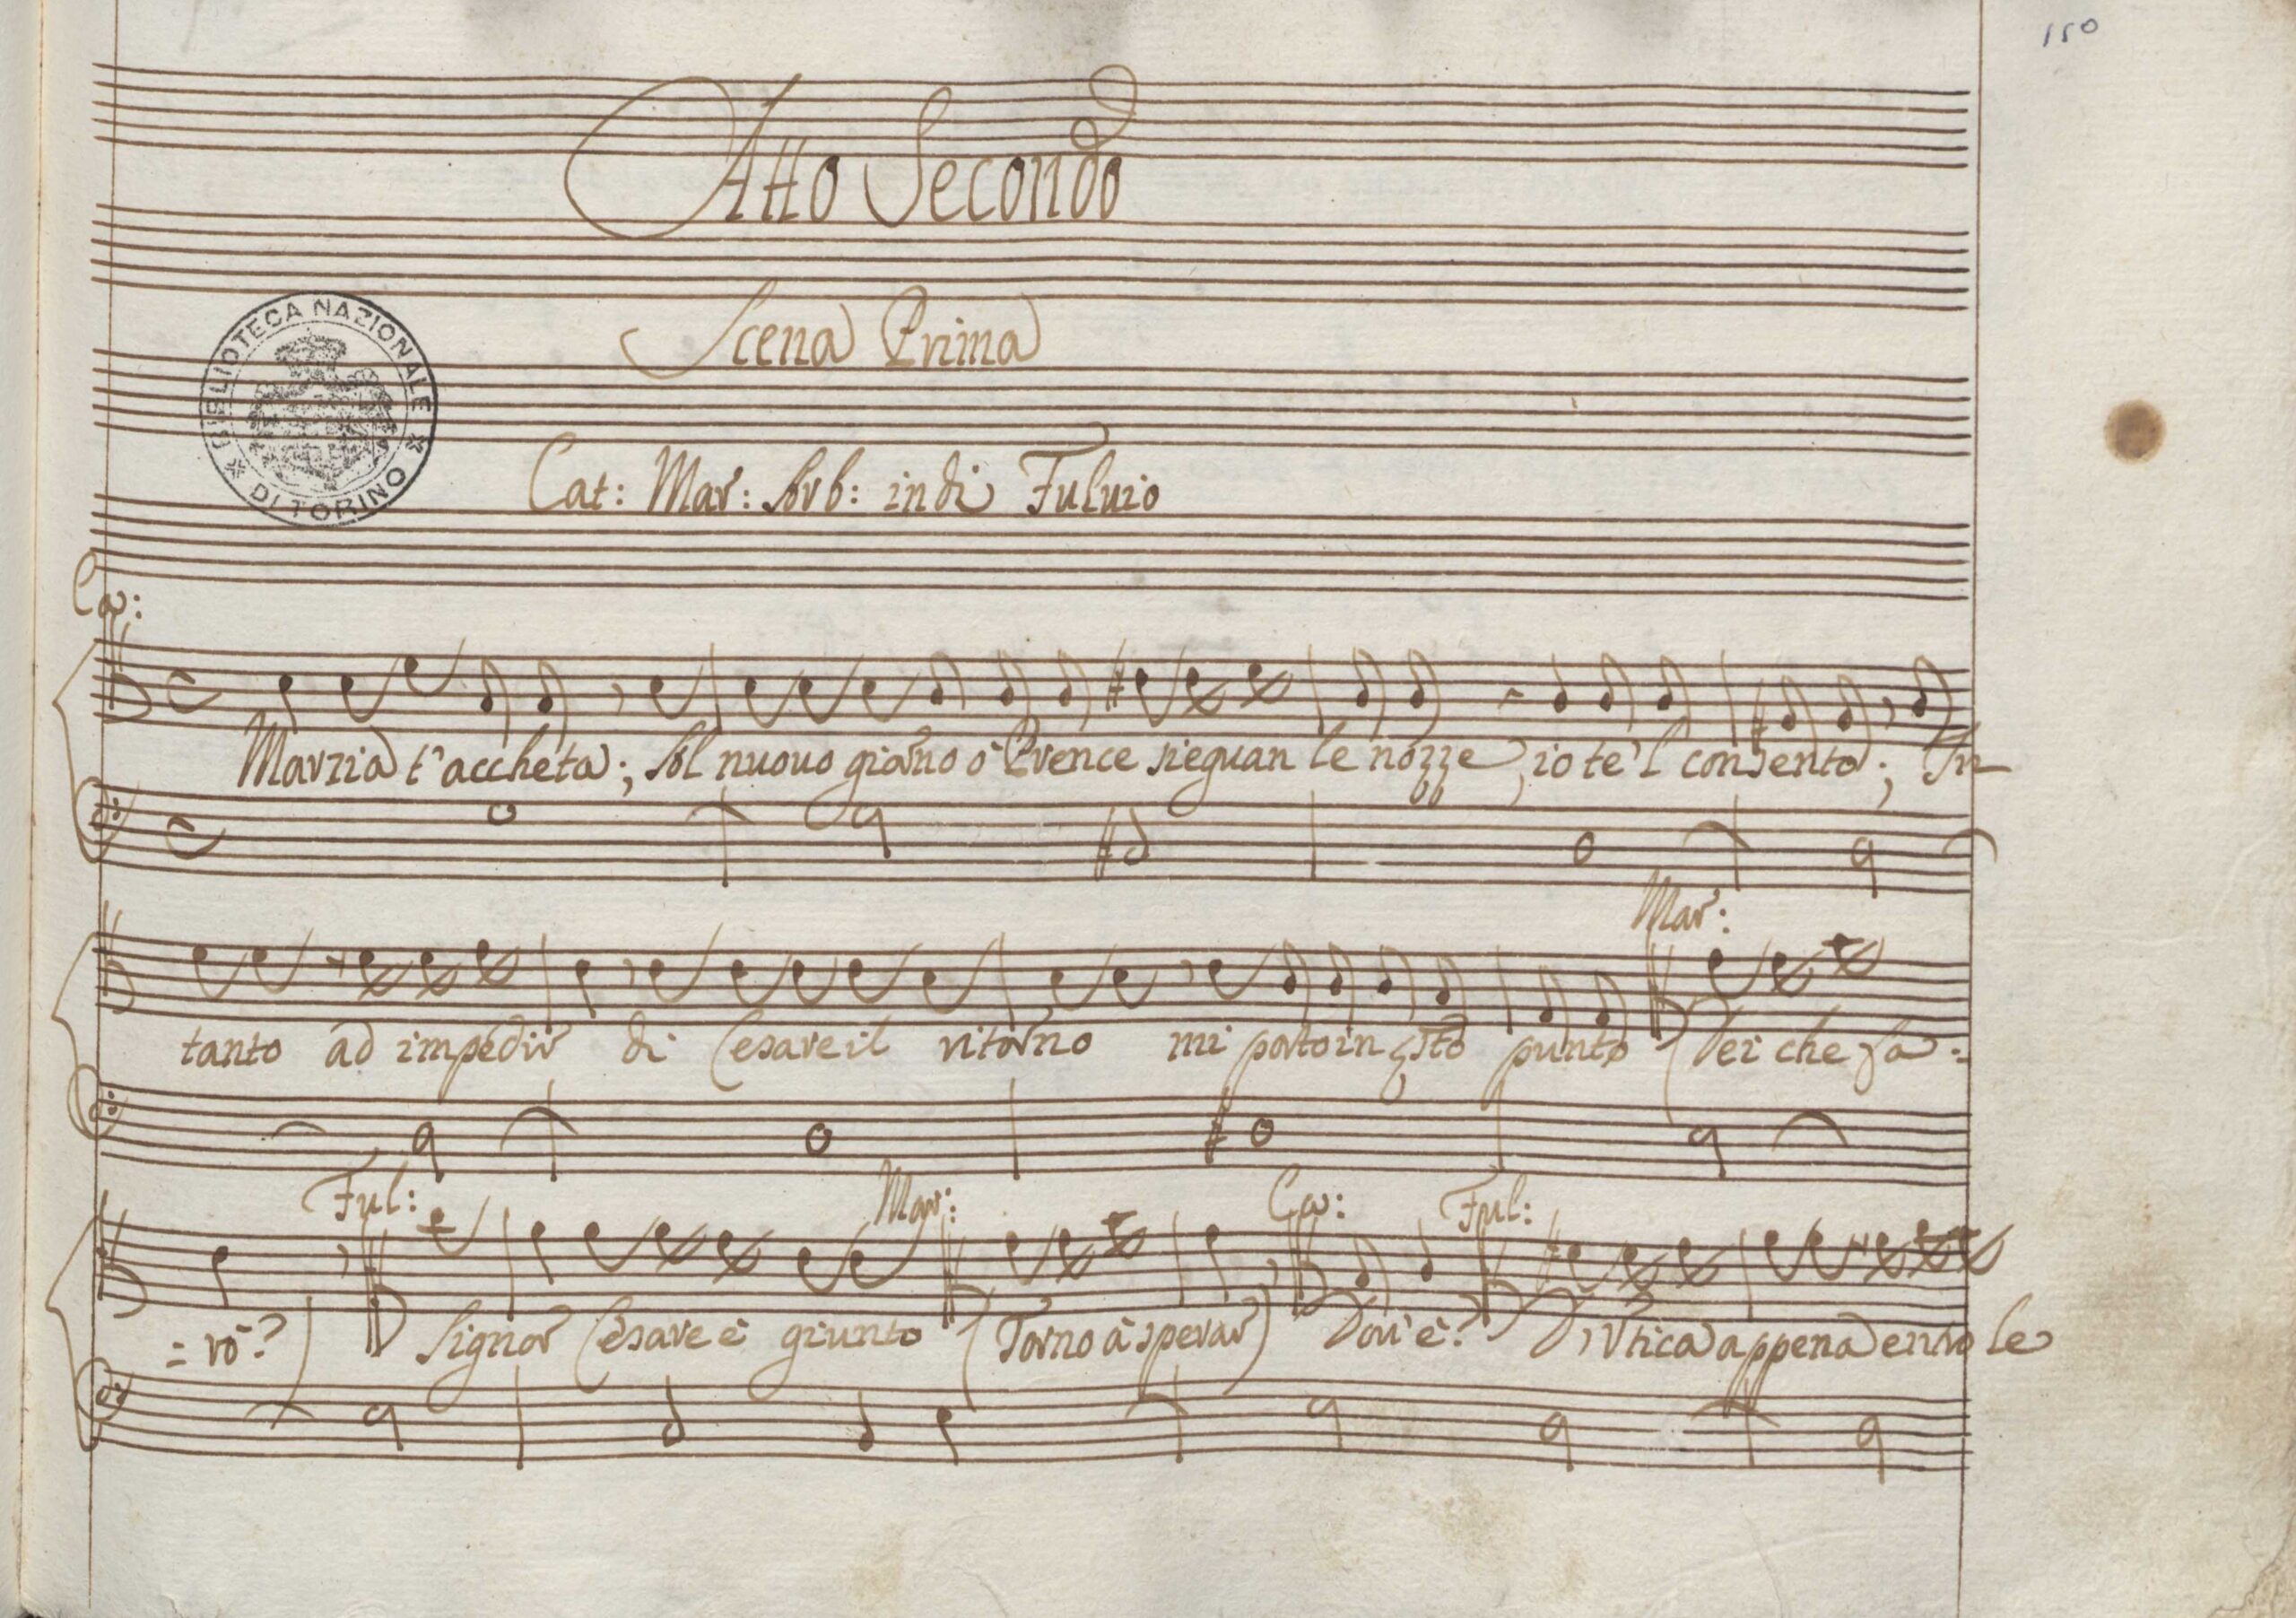 150
Atto Secondo
Scena Prima
BIBLIOTECA NAZIONALE
DI TORINO
Cat: Mar: Arb: indi Fuluio
Ca:
Marzia t'accheta; Sol nuouo giorno ò Prence sieguan le nozze, io te'l consento; In
Mar:
tanto ad impedir di Cesare il ritorno mi porto in qsto punto (Dei che fa:
Ful: Mar: Ca: Ful:
=rò?) Signor Cesare è giunto (Torno à sperar) Dou'è? D'Vtica appena entro le